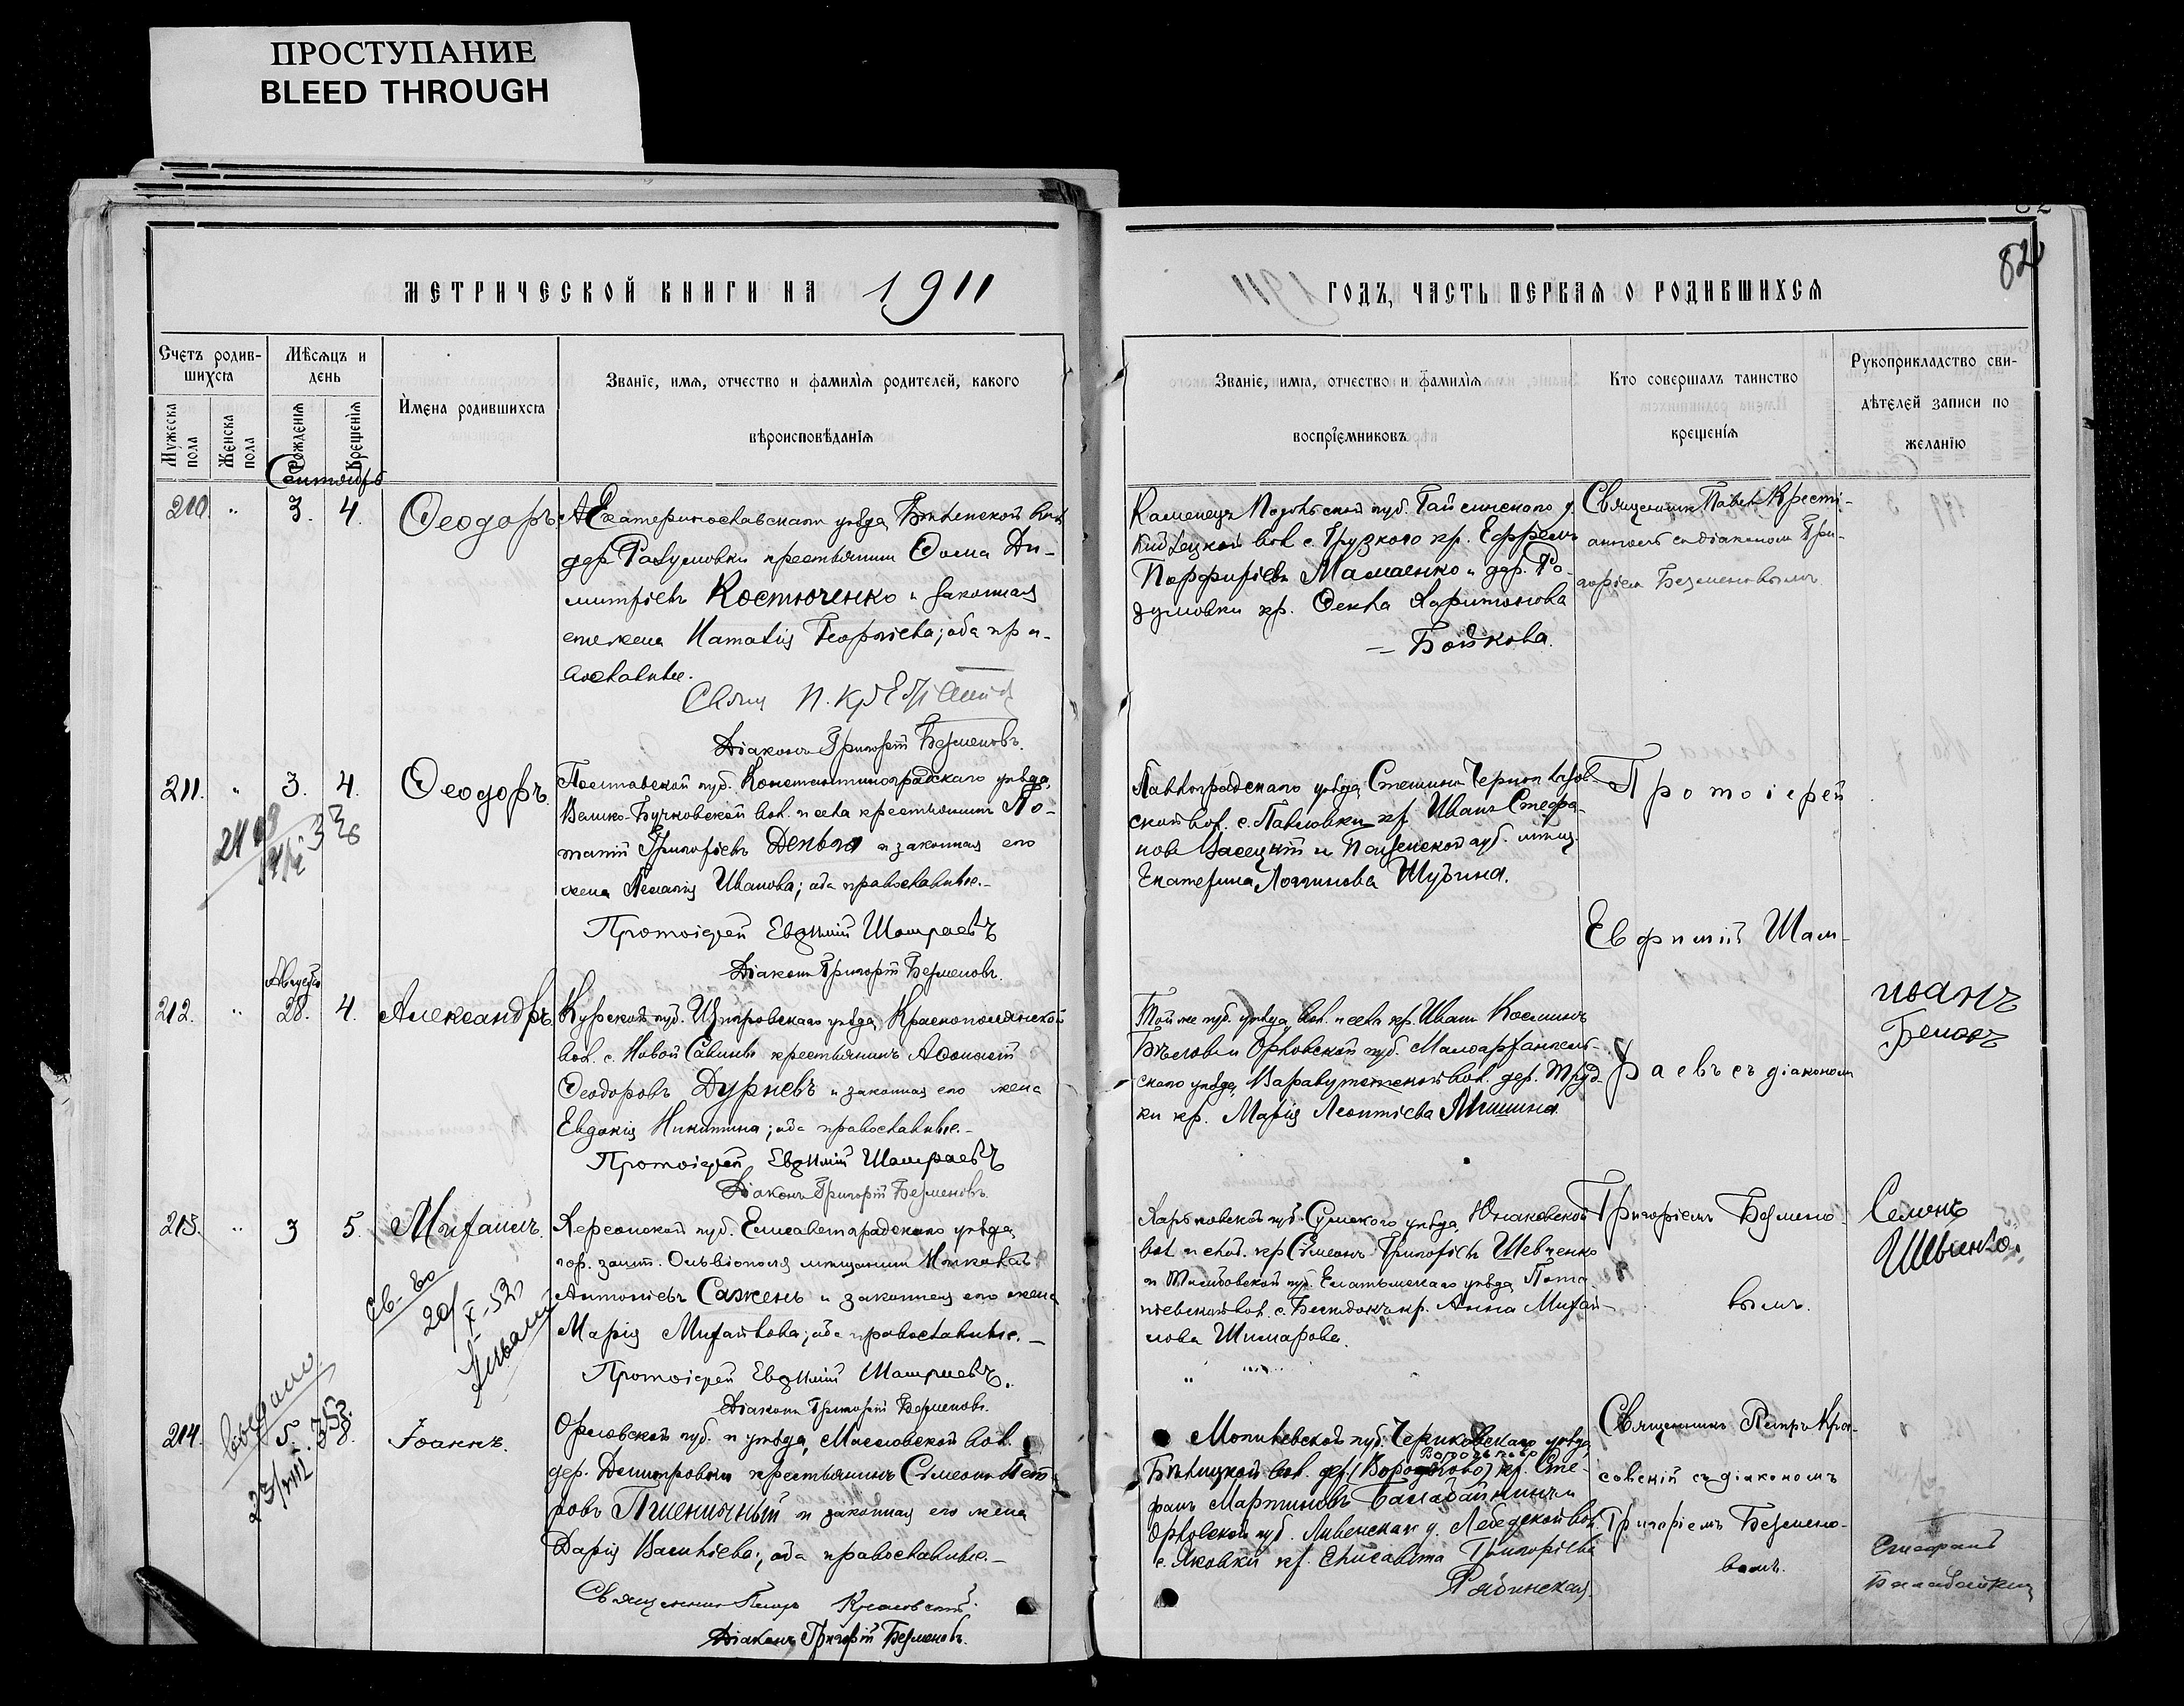 ПРОСТУПАНИЕ
BLEED THROUGH
82
МЕТРИЧЕСКОЙ КНИГИ НА 1911
ГОДЪ, ЧАСТЬ ПЕРВАЯ О РОДИВШИХСЯ
Счетъ родив-
шихся
Мужеска пола
Женска пола
Мѣсяцъ и
день
Рожденія
Крещенія
Имена родившихся
Званіе, имя, отчество и фамилія родителей, какого
вѣроисповѣданія
Званіе, имя, отчество и фамилія
воспріемниковъ
Кто совершалъ таинство
крещенія
Рукоприкладство сви-
дѣтелей записи по
желанію
Сентябрь
210. " 3. 4. Ѳеодоръ
Екатеринославскаго уѣзда
дер. Разумовки крестьянинъ Ѳома Ди-
митріевъ Костюченко и законная
его жена Наталія Георгіева; оба пра-
вославные.
Діаконъ Григорій Безменовъ.
Каменецъ Подольской губ. Гайсинскаго у.
вол. с. Грузкого кр. Ефремъ
Порфиріевъ Мамаенко и дер. Ра-
зумовки кр. Ѳекла Харитонова
Бойкова.
Священникъ Павелъ Крести-
ановъ съ діакономъ Гри-
горіемъ Безменовымъ
211. " 3. 4. Ѳеодоръ.
Полтавской губ. Константиноградскаго уѣзда,
Велико-Бучковской вол. и села крестьянинъ По-
тапій Григорьевъ и законная его
жена Пелагія Иванова; оба православные.-
Протоіерей Евфимій Шамраевъ
Діаконъ Григорій Безменовъ.
Павлоградскаго уѣзда,
ской вол. с. Павловки кр. Иванъ Стефа-
новъ и Пензенской губ. мѣщ.
Екатерина Логгинова Шубина.
Протоіерей
Евфимій Шам-
раевъ съ діакономъ
Григоріемъ Безмено-
вымъ.
Августъ
212. " 28. 4. Александръ
Курской губ. Щигровскаго уѣзда, Краснополянской
вол. с. Новой Савины крестьянинъ Аѳанасій
Ѳеодоровъ Дурневъ и законная его жена
Евдокія Никитина; оба православные.-
Протоіерей Евфимій Шамраевъ
Діаконъ Григорій Безменовъ.
Той же губ. уѣзда, вол. и села кр. Иванъ Космин
Бѣловъ и Орловской губ. Малоархангель-
скаго уѣзда, вол. дер. Труд-
ки кр. Марія Леонтіева Мишина.
иванъ
Беловъ
213. " 3 5. Михаилъ.
Херсонской губ. Елисаветградскаго уѣзда,
гор. зашт. Ольвіополя мѣщанинъ
Антоніевъ Сажень и законная его жена
Марія Михайлова; оба православные.-
Протоіерей Евфимій Шамраевъ.
Діаконъ Григорій Безменовъ.
Харьковской губ. Сумского уѣзда, Юнаковской
вол. и слоб. кр. Сѵмеонъ Григорьевъ Шевченко
и Тамбовской губ. Елатомскаго уѣзда,
вол. с. кр. Анна Михай-
лова Шимарова.
Семенъ
Шевченко.
214. " 5. 8. Іоаннъ.
Орловской губ. и уѣзда, Масловской вол.
дер. Димитровки крестьянинъ Сѵмеонъ Пет-
ровъ Пшеничный и законная его жена
Дарія Васильева; оба православные.-
Священникъ Петръ Красовскій.
Діаконъ Григорій Безменовъ.
Могилевской губ. Чериковскаго уѣзда,
Бѣлицкой вол. дер. кр. Сте-
фанъ Мартиновъ Балабайкинъ и
Орловской губ. Ливенскаго у. Лебедской вол.
с. Яковки кр. Елисавета Григорьева
Рябинская.
Священникъ Петръ Кра-
совскій съ діакономъ
Григоріемъ Безмено-
вымъ.
Стефанъ
Балабайкин